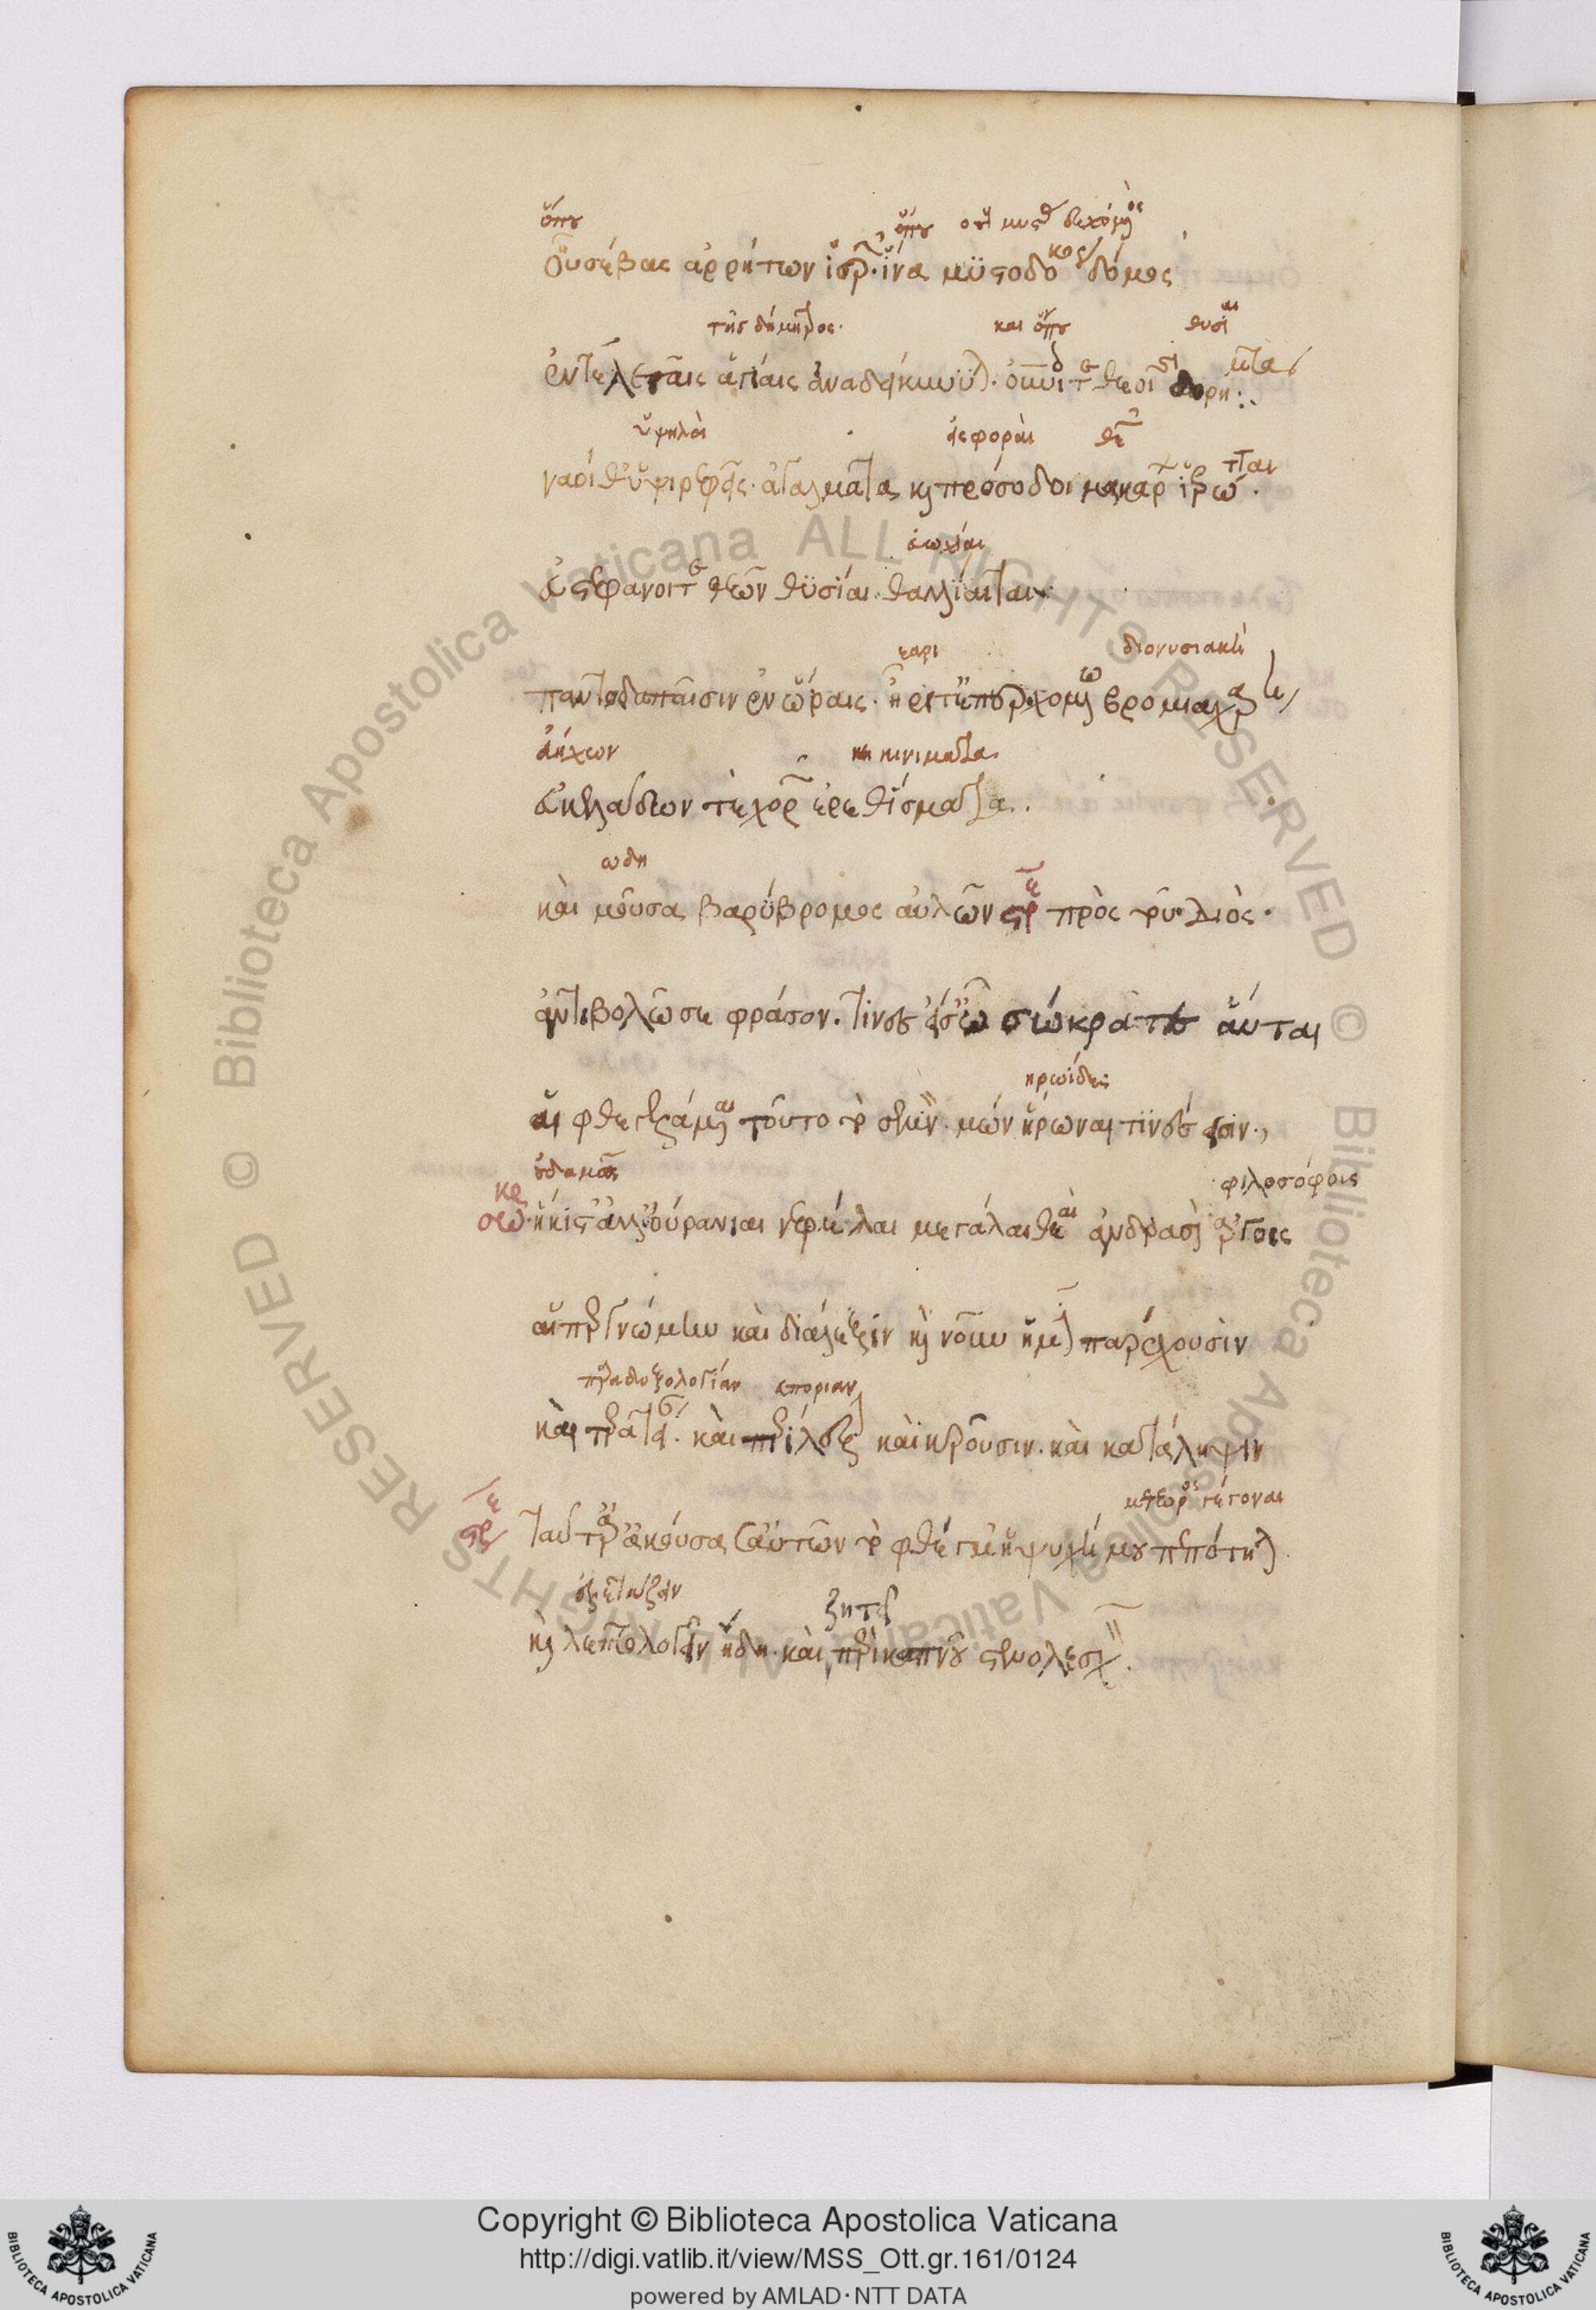 ὅπου ὅπου τοὺς μύστας δεχόμενος
οὗ σέβας ἀρρήτων ἱερῶν· ἵνα μυστοδόκος δόμος
τῆς δήμητρος· καὶ ὅπου θυσίαι
ἐν τελεταῖς ἁγίαις ἀναδείκνυται· οὐρανίοις τε θεοῖσι δωρήματα
ὑψηλοὶ θεῶν
ναοί θ' ὑψιρεφεῖς· ἀγάλματα καὶ πρόσοδοι μακάρων ἱερώταται·
εὐωχίαι
εὐστέφανοι τε θεῶν θυσίαι θαλίαι τε
ἔαρι διονυσιακὴ
παντοδαπαῖσιν ἐν ὥραις· ἦρι τ' ἐπερχομένῳ βρομία χάρις
εὐήχων κινήματα
εὐκελάδων τε χορῶν ἐρεθίσματα·
ωδη
καὶ μοῦσα βαρύβρομος αὐλῶν στρε πρὸς τοῦ Διὸς·
ἀντιβολῶ σε φράσον· τίνες εἰσὶν ὦ σώκρατες αὗται
ἡρωίδες
αἱ φθεγξάμεναι τοῦτο τὸ σεμνόν· μῶν ἡρῶναι τινές εἰσιν·
οὐδαμῶς φιλοσόφοις
σωκρ ἥκιστ' ἀλλ' οὐράνιαι νεφέλαι μεγάλαι θεαὶ ἀνδράσιν ἀργοῖς
αἵπερ γνώμην καὶ διάλεξιν καὶ νοῦν ἡμῖν παρέχουσιν
παραδοξολογίαν ἀπορίαν
καὶ τερατείαν· καὶ περίλεξιν καὶ κροῦσιν· καὶ κατάληψιν
μετέωρος γέγονεν
στρε ταῦτ' ἄρ' ἀκούσασ' αὐτῶν τὸ φθέγμ' ἡ ψυχή μου πεπότηται
ζητεῖ
καὶ λεπτολογεῖν ἤδη· καὶ περὶ καπνοῦ στενολεσχεῖν·
Copyright © Biblioteca Apostolica Vaticana
http://digi.vatlib.it/view/MSS_Ott.gr.161/0124
powered by AMLAD · NTT DATA
BIBLIOTECA APOSTOLICA VATICANA
BIBLIOTECA APOSTOLICA VATICANA
Biblioteca Apostolica Vaticana ALL RIGHTS RESERVED ©
Biblioteca Apostolica Vaticana ALL RIGHTS RESERVED ©